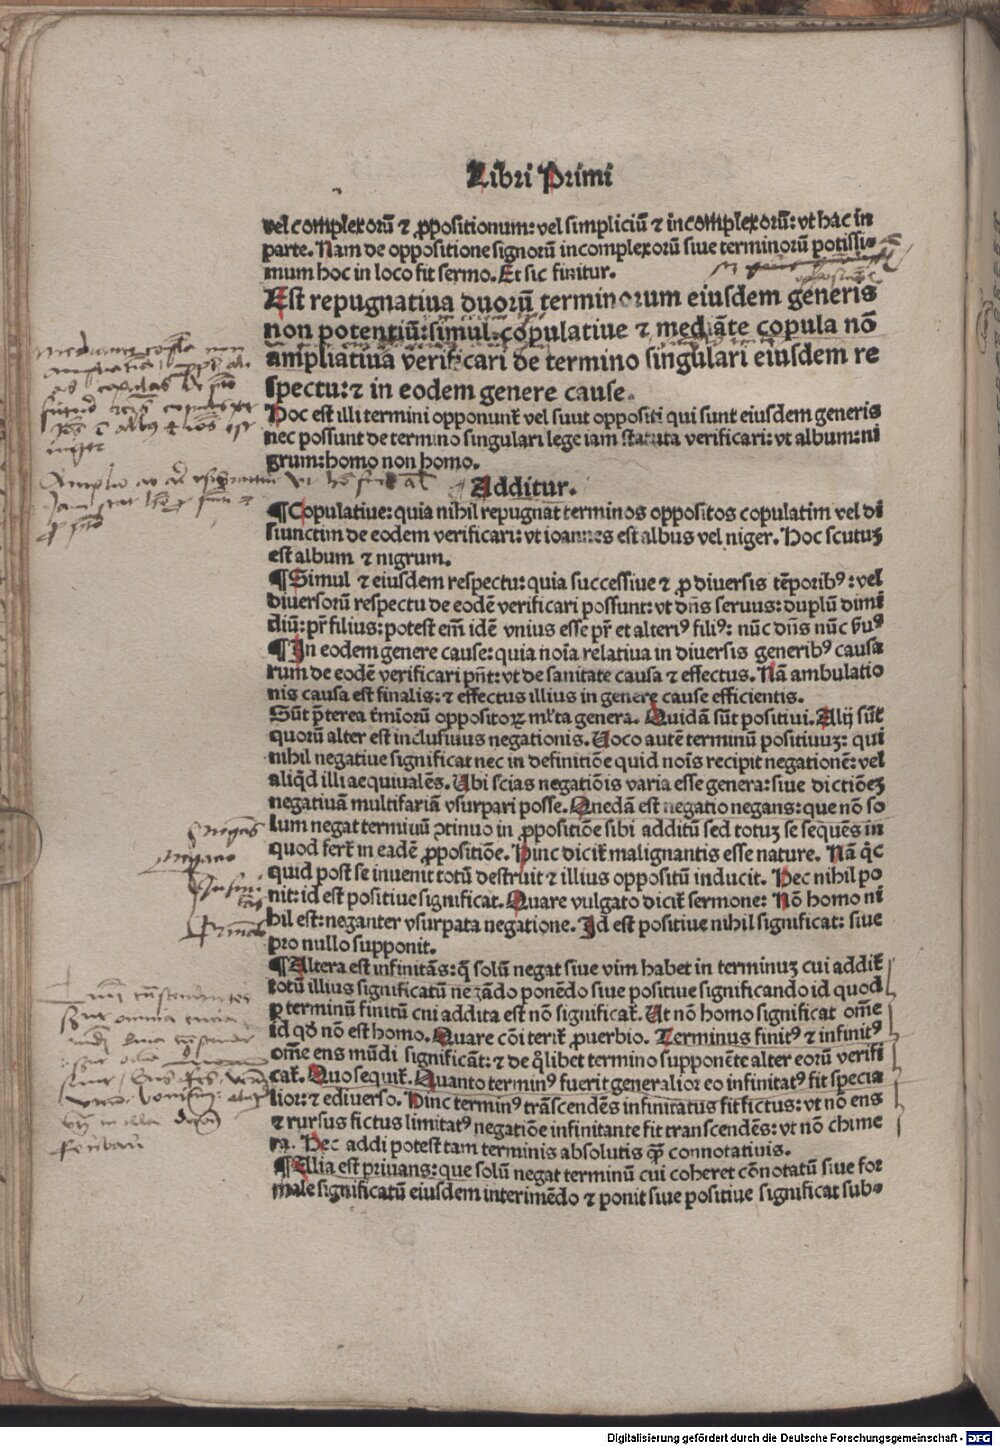 Libri Primi
vel complexorū ⁊ ꝓpositionum: vel simpliciū ⁊ incomplexorū: vt hac in
parte. Nam de oppositione signorū incomplexorū siue terminorū potissi-
mum hoc in loco fit sermo. Et sic finitur.
Est repugnatiua duorū terminorum eiusdem generis
non potentiū: simul: copulatiue ⁊ mediāte copula nō
ampliatiua verificari de termino singulari eiusdem re
spectu: ⁊ in eodem genere cause.
Hoc est illi termini opponunt̄ vel suut oppositi qui sunt eiusdem generis
nec possunt de termino singulari lege iam statuta verificari: vt album: ni
grum: homo non homo.
Additur.
¶ Copulatiue: quia nihil repugnat terminos oppositos copulatim vel di
siunctim de eodem verificari: vt ioannes est albus vel niger. Hoc scutuꝫ
est album ⁊ nigrum.
¶ Simul ⁊ eiusdem respectu: quia successiue ⁊ ꝓ diuersis tēporibꝰ: vel
diuersorū respectu de eodē verificari possunt: vt dn̄s seruus: duplū dimi
diū: pr̄ filius: potest em̄ idē vnius esse pr̄ et alteriꝰ filiꝰ: nūc dn̄s nūc ẜuꝰ
¶ In eodem genere cause: quia noīa relatiua in diuersis generibꝰ causa
rum de eodē verificari pn̄t: vt de sanitate causa ⁊ effectus. Nā ambulatio
nis causa est finalis: ⁊ effectus illius in genere cause efficientis.
Sūt p̄terea t̄miorū oppositoꝝ ml̄ta genera. Quidā sūt positiui. Alij sūt
quorū alter est inclusiuus negationis. Uoco autē terminū positiuuꝫ: qui
nihil negatiue significat nec in definitiōe quid noīs recipit negationē: vel
aliq̇d illi aequiualēs. Ubi scias negatiōis varia esse genera: siue dictiōeꝫ
negatiuā multifariā vsurpari posse. Quedā est negatio negans: que nō so
lum negat terminū ↄtinuo in ꝓpositiōe sibi additū sed totuꝫ se sequēs in
quod fert̄ in eadē ꝓpositiōe. Hinc dicit̄ malignantis esse nature. Nā q̇c
quid post se inuenit totū destruit ⁊ illius oppositū inducit. Hec nihil po
nit: id est positiue significat. Quare vulgato dicit̄ sermone: Nō homo ni
hil est: neganter vsurpata negatione. Id est positiue nihil significat: siue
pro nullo supponit.
¶ Altera est infinitās: q̄ solū negat siue vim habet in terminuꝫ cui addit̄
totū illius significatū negādo ponēdo siue positiue significando id quod
ꝑ terminū finitū cui addita est nō significat̄. Ut nō homo significat om̄e
id qḋ nō est homo. Quare cōi terit̄ ꝓuerbio. Terminus finitꝰ ⁊ infinitꝰ
om̄e ens mūdi significāt: ⁊ de q̇libet termino supponēte alter eorū verifi
cat̄. Quo sequit̄. Quanto terminꝰ fuerit generalior eo infinitatꝰ fit specia
lior: ⁊ ediuerso. Hinc terminꝰ trāscendēs infinitatus fit fictus: vt nō ens
⁊ rursus fictus limitatꝰ negatiōe infinitante fit transcendēs: vt nō chime
ra. Hec addi potest tam terminis absolutis q̄ꝫ connotatiuis.
¶ Alia est priuans: que solū negat terminū cui coheret cōnotatū siue for
male significatū eiusdem interimēdo ⁊ ponit siue positiue significat sub-
Digitalisierung gefördert durch die Deutsche Forschungsgemeinschaft - DFG